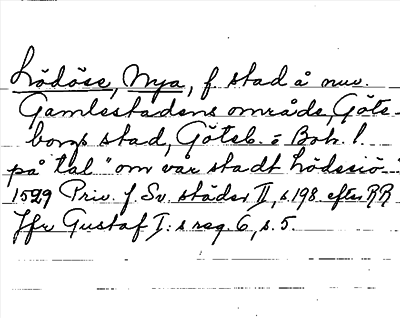 Lödöse, Nya, f stad å nuv.
Gamlestadens område, Göte-
borgs stad, Göteb. o Boh. l.
på tal "om var stadt Lödesiö"
1529 Priv. f. Sv. städer II, s. 198 efter RR
Jfr Gustaf I:s reg. 6, s. 5.